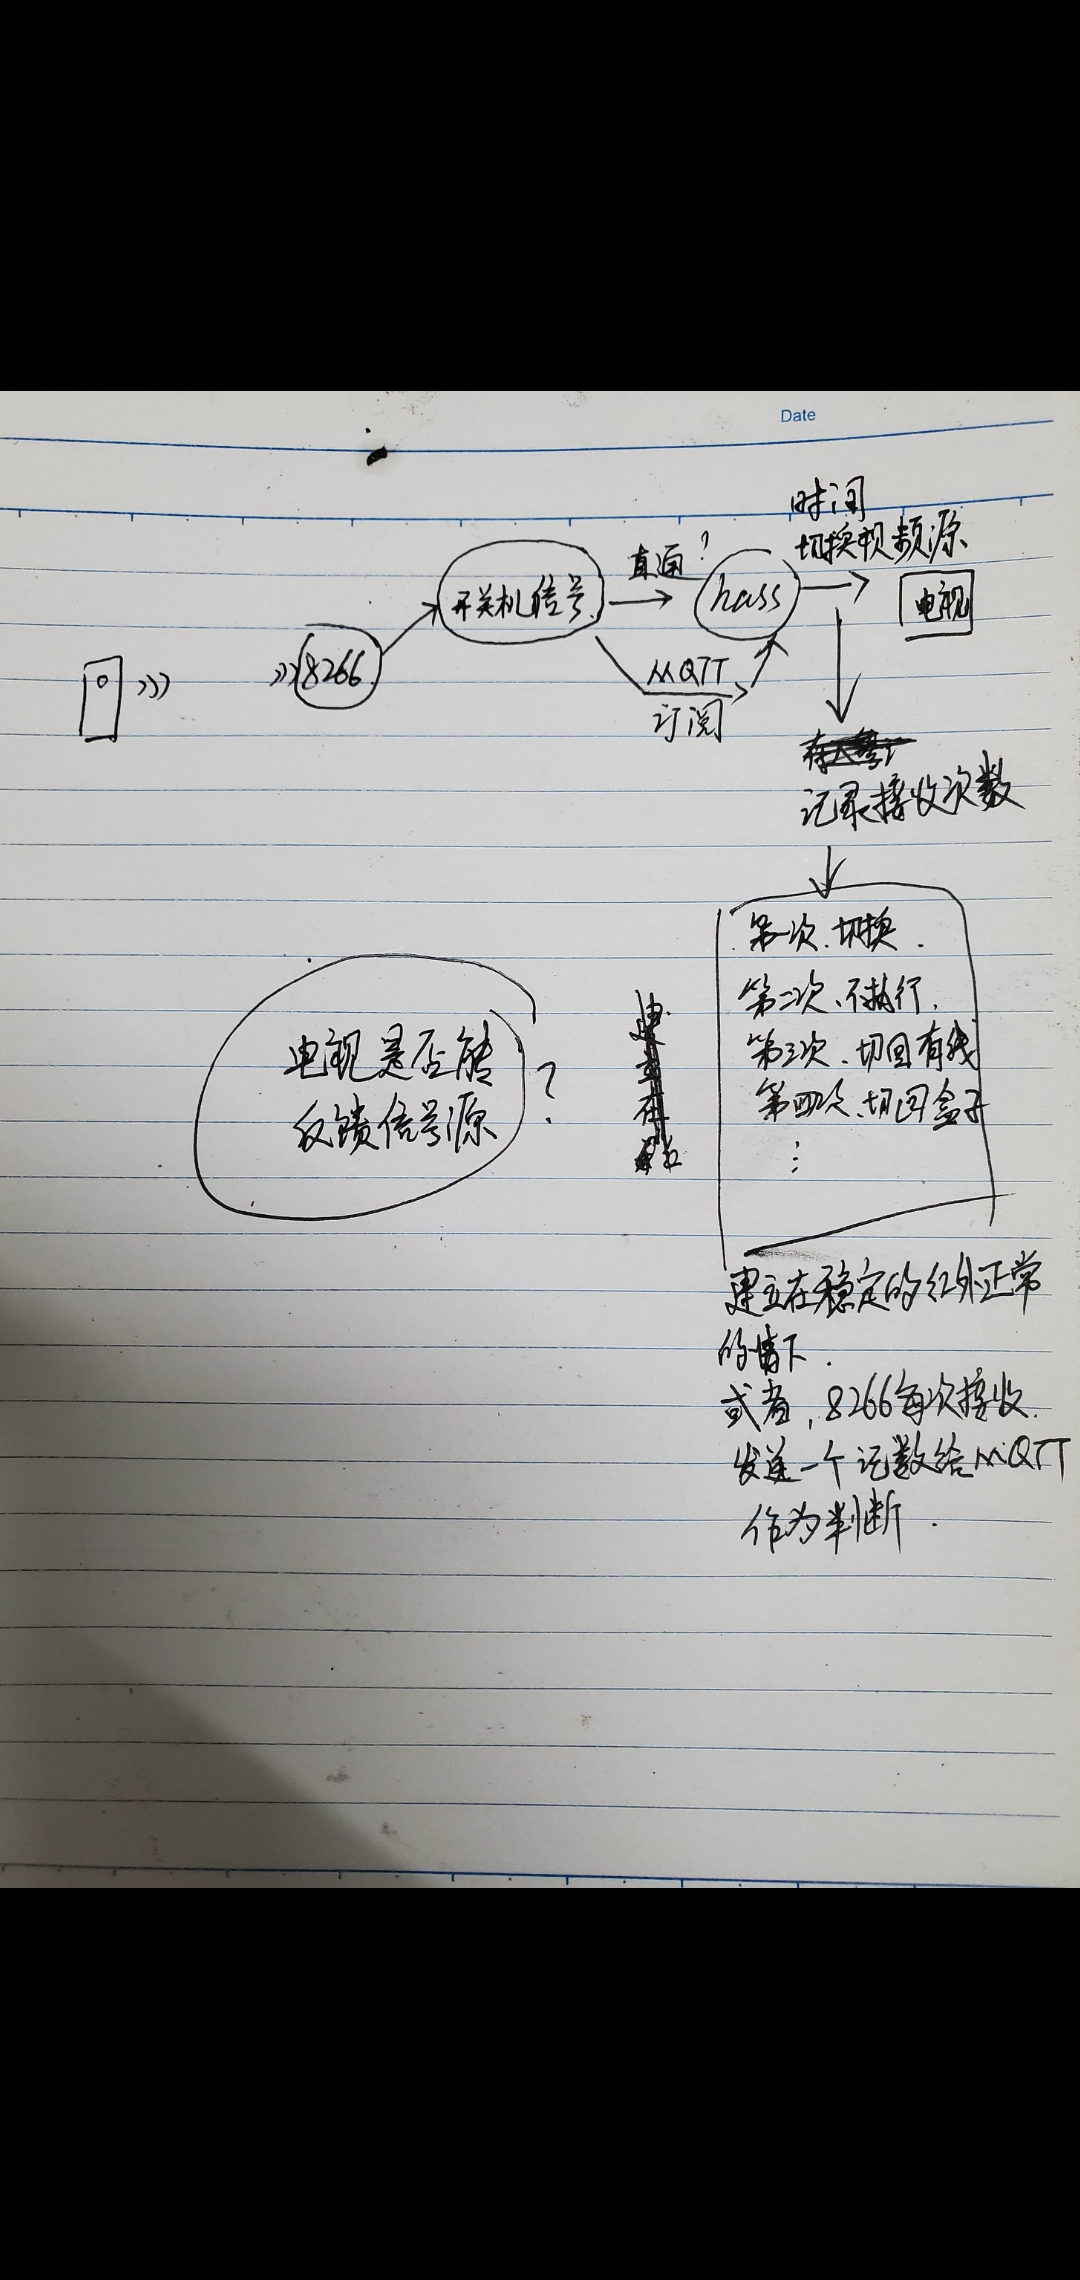 Date
时间
切换视频源
直通?
开关机信号
hass
电视
8266
MQTT
订阅
记录接收次数
第一次、切换.
第二次、不执行.
第三次、切回有线
第四次、切回盒子
⋮
电视是否能
反馈信号源
?
建立在
建立在稳定的红外正常
的情下.
或者,8266每次接收.
发送一个记数给MQTT
作为判断.